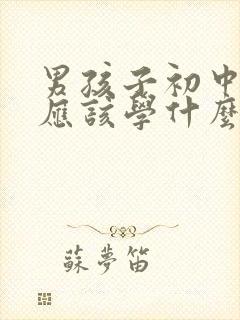 男孩子初中
應該學什麼
蘇夢笛